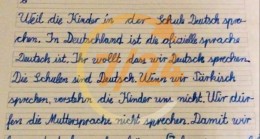 Weil die Kinder in der Schule Deutsch spre-
chen. In Deutschland ist die ofizielle sprache
Deutsch ist. Ihr wollt das wir Deutsch sprechen.
Die Schulen sind Deutsch. Wenn wir Türkisch
sprechen, verstehn die Kinder uns nicht. Wir dür-
fen die Muttersprache nicht sprechen. Damit wir